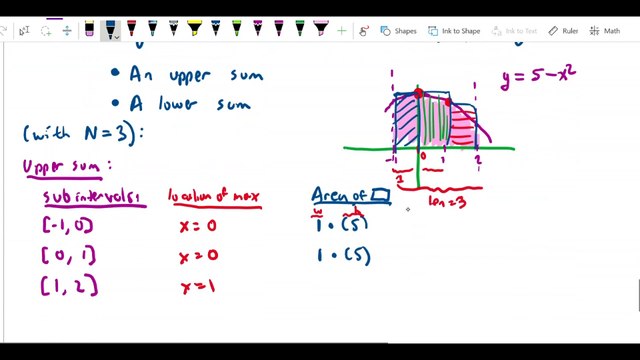 Shapes Ink to Shape Ruler Math
• An upper sum
• A lower sum
(with N=3):
y = 5-x²
-1 0 1 2
1
len=3
Upper sum:
subintervals: location of max Area of □
w h
[-1, 0) x=0 1 • (5)
[0, 1] x=0 1 • (5)
[1, 2] x=1